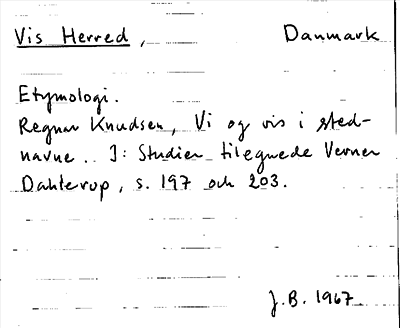 Vis Herred, Danmark
Etymologi.
Regnar Knudsen, Vi og vis i sted-
navne.. I: Studier tilegnede Verner
Dahlerup, s. 197 och 203.
J.B. 1967